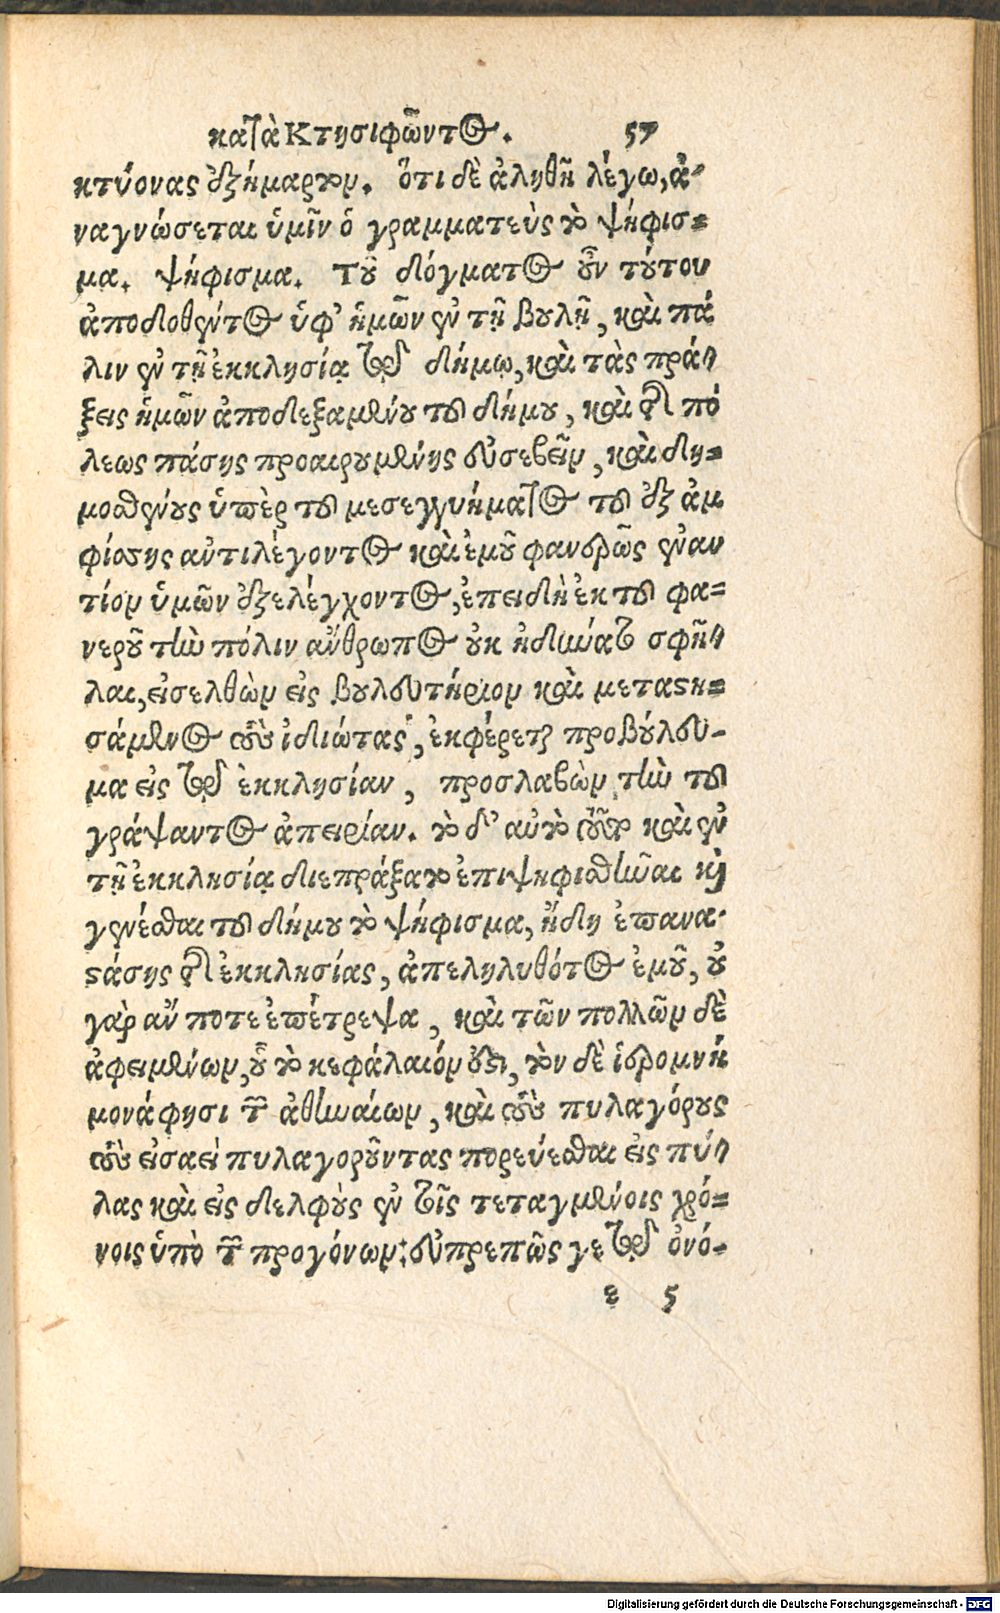 κατὰ Κτησιφῶντος. 57
κτύονας ἐξήμαρτον. ὅτι δὲ ἀληθῆ λέγω, ἀ-
ναγνώσεται ὑμῖν ὁ γραμματεὺς τὸ ψήφισ-
μα. ψήφισμα. Τοῦ δόγματος οὖν τούτου
ἀποδοθέντος ὑφ' ἡμῶν ἐν τῇ βουλῇ, καὶ πά
λιν ἐν τῇ ἐκκλησίᾳ τῷ δήμῳ, καὶ τὰς πρά-
ξεις ἡμῶν ἀποδεξαμένου τοῦ δήμου, καὶ τῆς πό
λεως πάσης προαιρουμένης εὐσεβεῖν, καὶ δη-
μοσθένους ὑπὲρ τοῦ μεσεγγυήματος τοῦ ἐξ ἀμ
φίσσης ἀντιλέγοντος καὶ ἐμοῦ φανερῶς ἐναν
τίον ὑμῶν ἐξελέγχοντος, ἐπειδὴ ἐκ τοῦ φα-
νεροῦ τὴν πόλιν ἄνθρωπος οὐκ ἠδύνατο σφῆ-
λαι, εἰσελθὼν εἰς βουλευτήριον καὶ μεταστη-
σάμενος τοὺς ἰδιώτας, ἐκφέρεται προβούλευ-
μα εἰς τὴν ἐκκλησίαν, προσλαβὼν τὴν τοῦ
γράψαντος ἀπειρίαν. τὸ δ' αὐτὸ τοῦτο καὶ ἐν
τῇ ἐκκλησίᾳ διεπράξατο ἐπιψηφισθῆναι καὶ
γενέσθαι τοῦ δήμου τὸ ψήφισμα, ἤδη ἐπανα-
στάσης τῆς ἐκκλησίας, ἀπεληλυθότος ἐμοῦ, οὐ
γὰρ ἄν ποτε ἐπέτρεψα, καὶ τῶν πολλῶν δὲ
ἀφειμένων, οὗ τὸ κεφάλαιόν ἐστι, τὸν δὲ ἱερομνή
μονά φησι τῶν ἀθηναίων, καὶ τοὺς πυλαγόρους
τοὺς εἰσαεὶ πυλαγοροῦντας πορεύεσθαι εἰς πύ-
λας καὶ εἰς δελφοὺς ἐν τοῖς τεταγμένοις χρό-
νοις ὑπὸ τῶν προγόνων: εὐπρεπῶς γε τῷ ὀνό-
ε 5
Digitalisierung gefördert durch die Deutsche Forschungsgemeinschaft - DFG